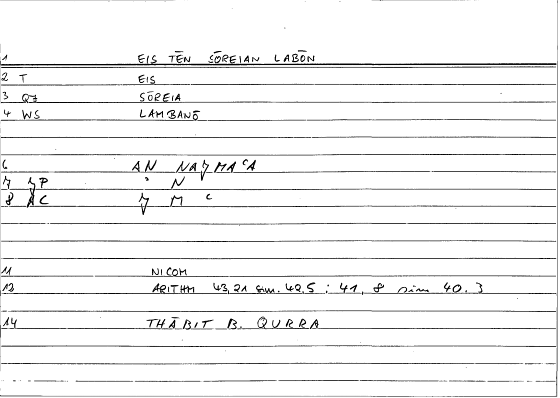 1 EIS TĒN SŌREIAN LABŌN
2 T EIS
3 Qz SŌREIA
4 WS LAMBANŌ
6 AN NAӡMAᶜA
7 ӡP ʾ N
8 AC ӡ M ᶜ
11 NICOM
12 ARITHM 43,21 sim. 42,5 : 41, 8 sim 40. 3
14 THĀBIT B. QURRA